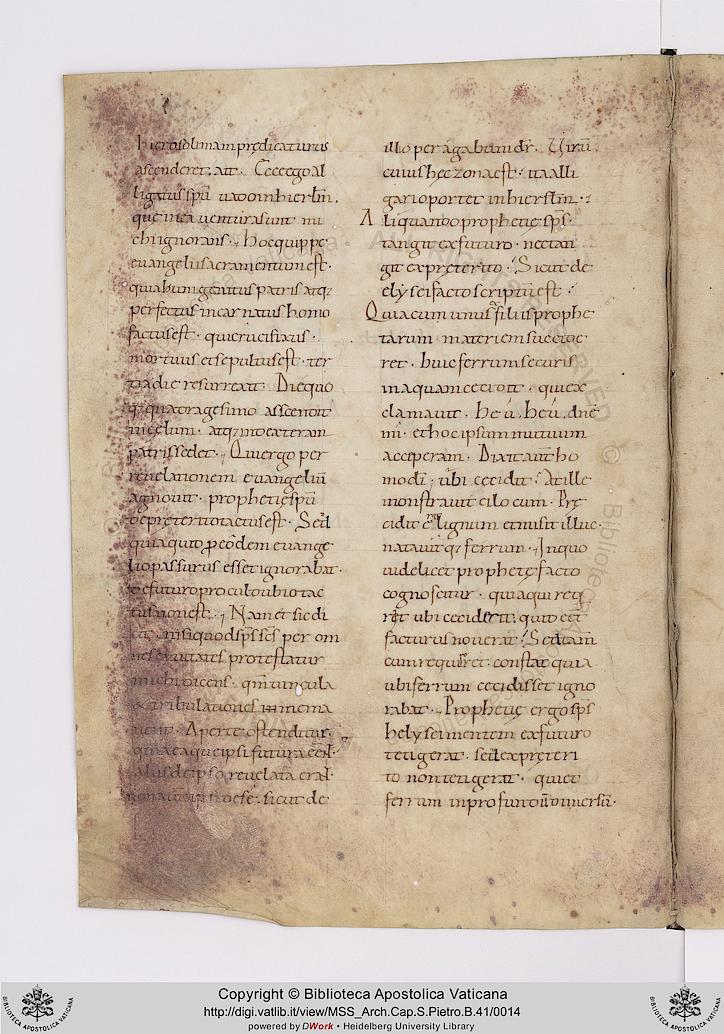 hierosolimam prędicaturus
ascenderet. ait. Ecce ego al
ligatus spū uado in hierłm.
quę in ea uentura sunt mi
chi ignorans. Hoc equippe
euangelii sacramentum est.
quia unigenitus patris atq;
perfectus incarnatus homo
factus est. qui crucifixus.
mortuus et sepultus est. ter
tia die resurrexit. Die quo
q; quadragesimo asscendit
in cęlum. atq; in dexteram
patris sedet. Qui ergo per
reuelationem euangeliū
agnouit. prophetię spū
de preterito tactus est. Sed
quia quid p eodem euange
lio passurus esset ignorabat.
de futuro procul dubio tac
tus non est. Nam et sic di
cit. nisi quod sp̄s sc̄s per om
nes ciuitates protestatur
michi dicens. qm̄ uincula
& tribulationes in me ma
nent. Aperte ostenditur.
quia ea que ipsi futura erāt.
aliis de ipso reuelata erāt.
non autem ipsi de se. sicut de
illo per agabum dr̄. Virū
cuius hęc zona est. ita alli
gari oportet in hierslm̄.
Aliquando prophetię sp̄s
tangit ex futuro. nec tan
git ex preterito. Sicut de
elyseī facto scriptū est.
Qui a cum unus filiis prophe
tarum materiem succide
ret. huic ferrum securis
in aquam cecidit. qui ex
clamauit. heu. heu. dn̄e
mi. et hoc ipsum mutuum
acceperam. Dixit aut ho
mo di. ubi cecidit. At ille
monstrauit ei locum. Prę
cidit ergo lignum et misit illuc.
natauitq; ferrum. In quo
uidelicet prophetę facto
cognoscitur. quia qui req
ret ubi cecidsset. quid eēt
facturus nouerat. Sed tam
cum requiret. constat quia
ubi ferrum cecidisset igno
rabat. Prophetię ergo sp̄s
helysei mentem ex futuro
tetigerat. sed ex preteri
to non tetigerat. qui et
ferrum in profundū dimersū.
Copyright © Biblioteca Apostolica Vaticana
http://digi.vatlib.it/view/MSS_Arch.Cap.S.Pietro.B.41/0014
powered by DWork • Heidelberg University Library